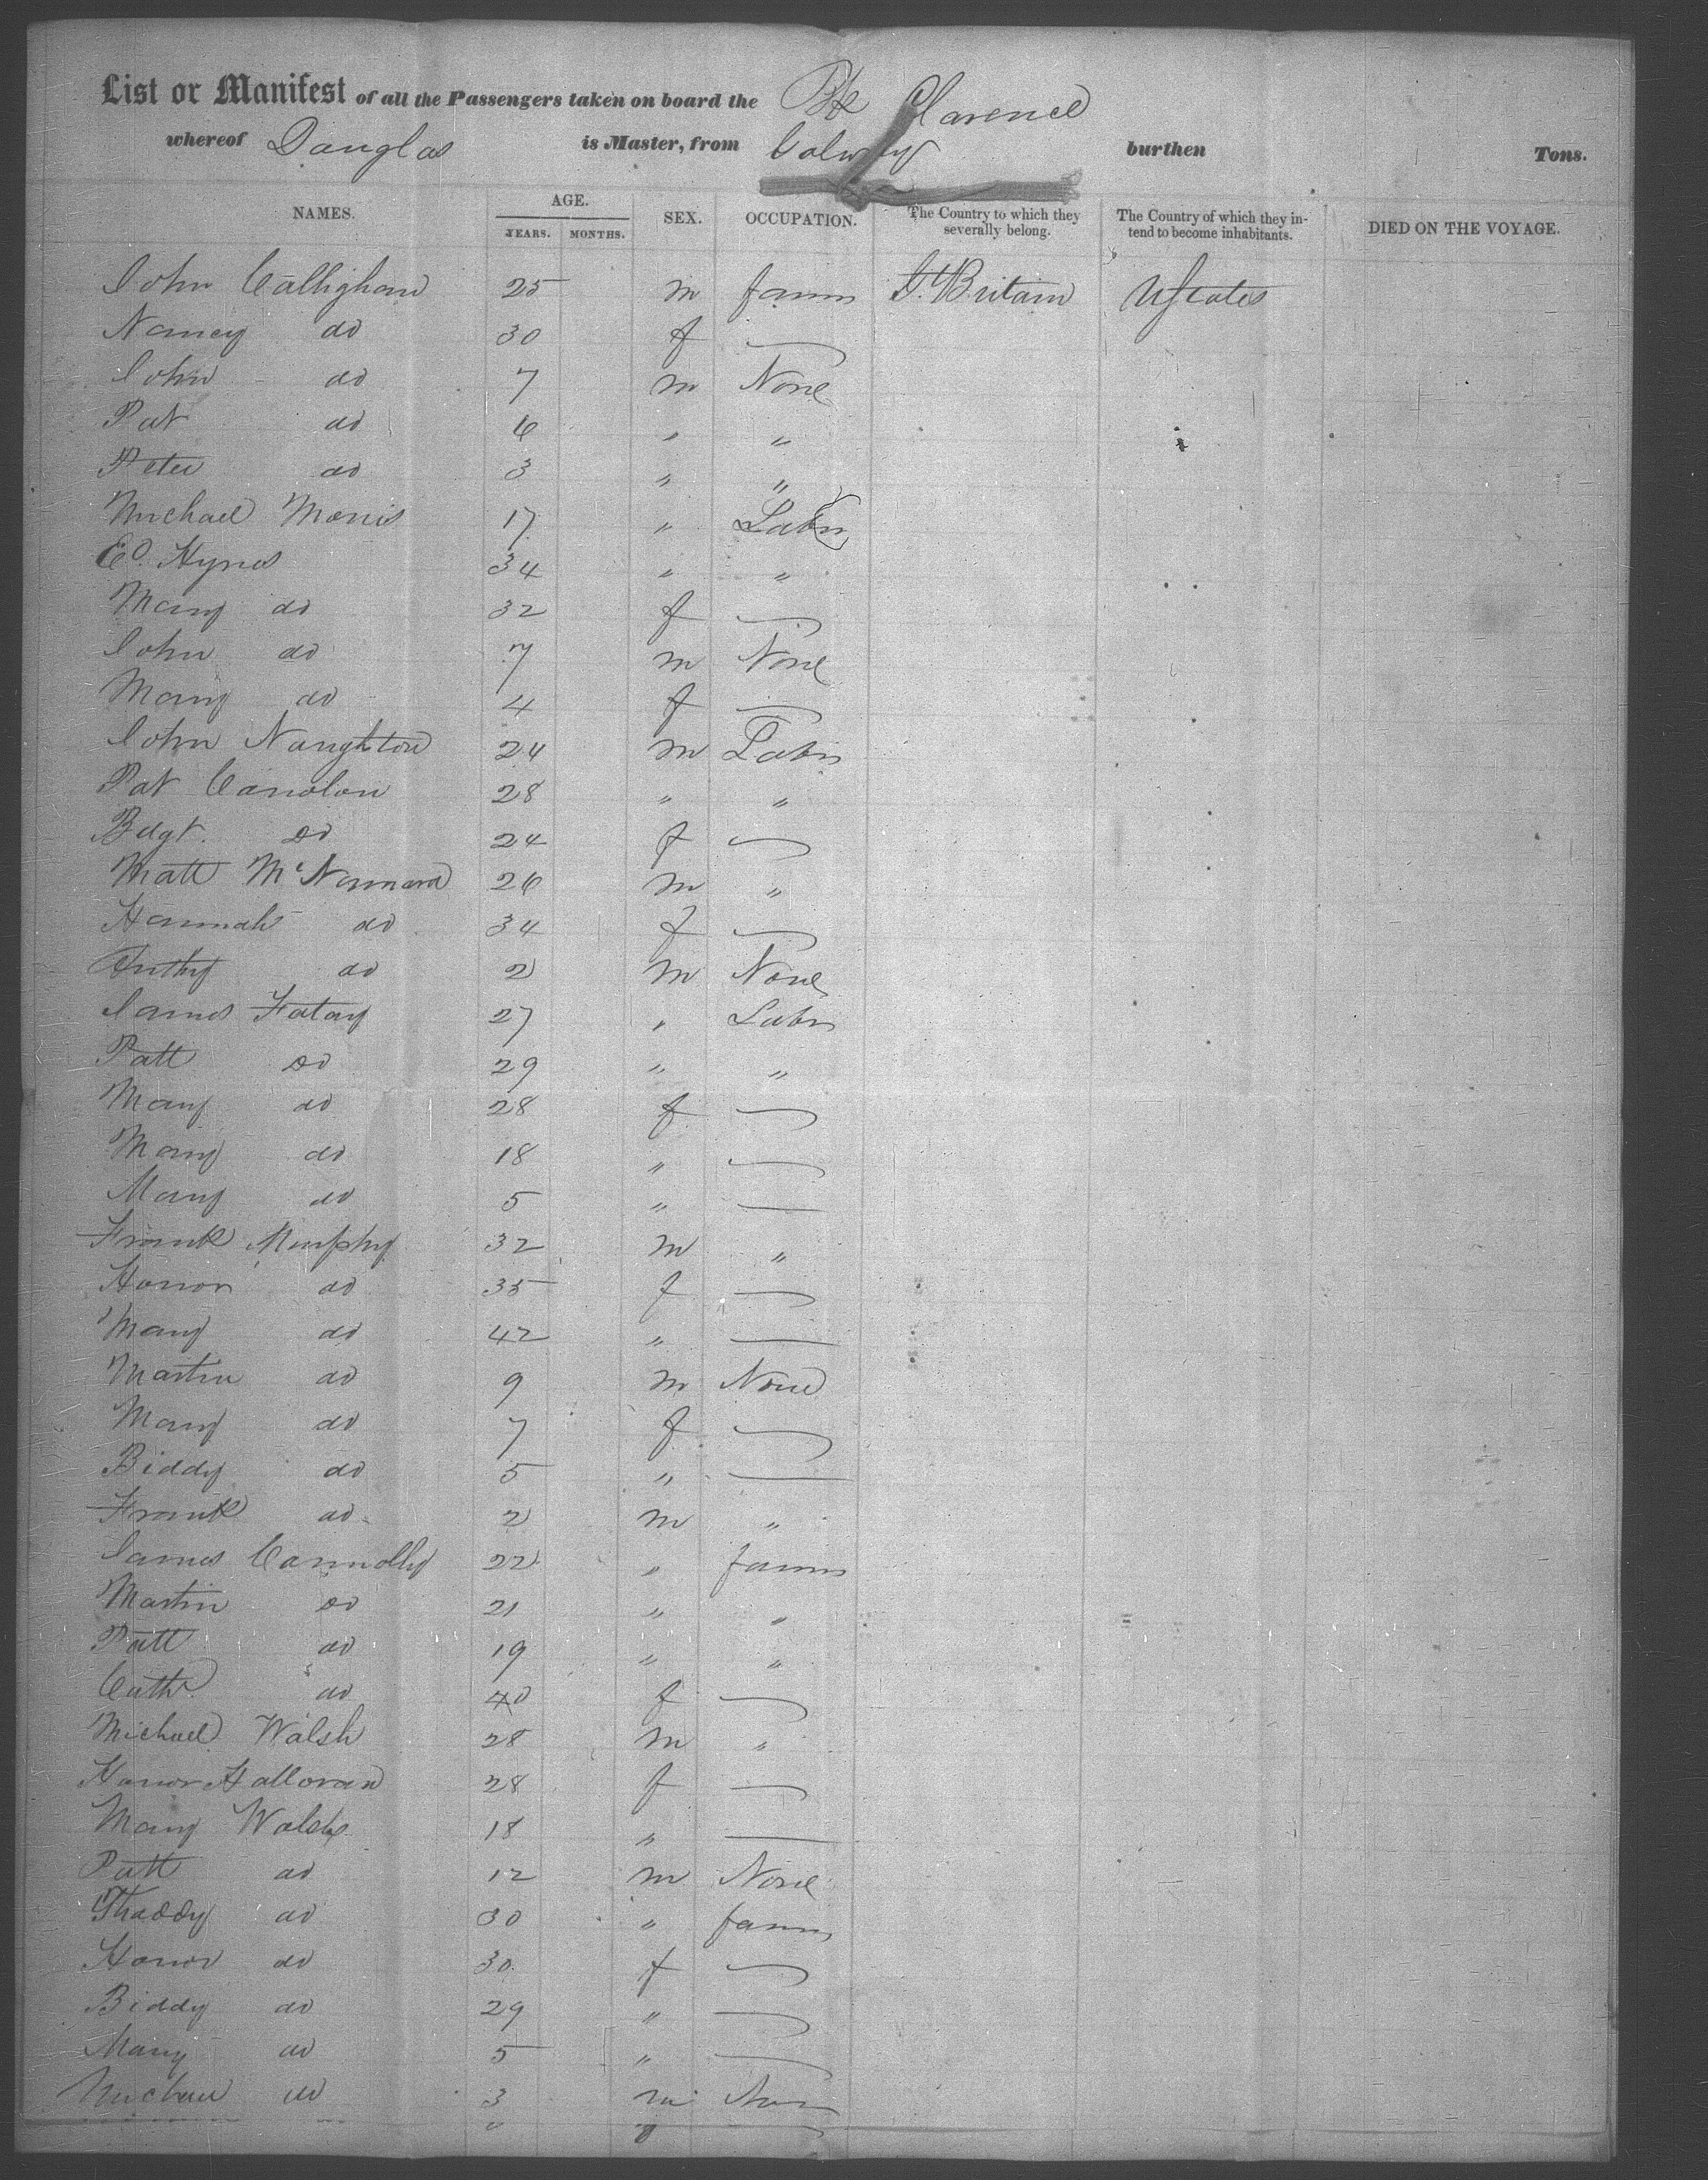 List or Manifest of all the Passengers taken on board the Bk Clarence
whereof Douglas is Master, from Galway burthen Tons.
NAMES. AGE. YEARS. MONTHS. SEX. OCCUPATION. The Country to which they severally belong. The Country of which they intend to become inhabitants. DIED ON THE VOYAGE.
John Callighan 25 m farmr Gt Britain UStates
Nancy do 30 f —
John do 7 m None
Pat do 6 " "
Peter do 3 " "
Michael Morris 17 " Labr
Ed. Hynes 34 " "
Mary do 32 f —
John do 7 m None
Mary do 4 f —
John Naughton 24 m Labr
Pat 28 " "
Bdgt. do 24 f —
Matt McNamara 26 m "
Hannah do 34 f —
Anthy do 2 m None
James Fatay 27 " Labr
Patt do 29 " "
Mary do 28 f —
Mary do 18 " —
Mary do 5 " —
Frank Murphy 32 m "
Honor do 35 f —
Mary do 42 " —
Martin do 9 m None
Mary do 7 f —
Biddy do 5 " —
Frank do 2 m "
James Connolly 22 " farmr
Martin do 21 " "
Patt do 19 " "
Cath. do 40 f —
Michael Walsh 28 m "
Honor Halloran 28 f —
Mary Walsh 18 " —
Patt do 12 m None
Thaddy do 30 " farmr
Honor do 30 f —
Biddy do 29 " —
Mary do 5 " —
Michael do 3 m None